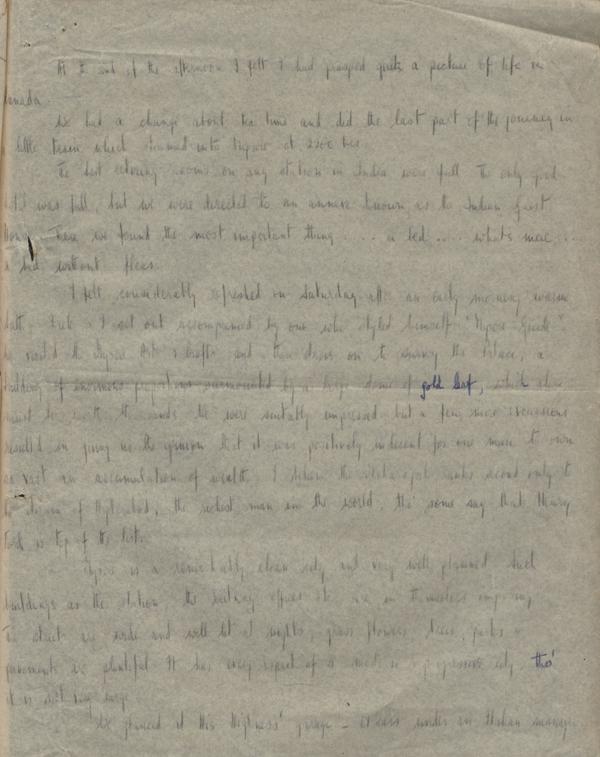 At the end of the afternoon I felt I had grasped quite a picture of life in
Canada.
We had a change about tea time and did the last part of the journey in
a little train which steamed into Mysore at 2200 hrs.
The best retiring rooms on any station in India were full. The only good
hotel was full, but we were directed to an annexe known as the Indian Guest
House. There we found the most important thing .... a bed .... what's more ...
a bed without fleas.
I felt considerably refreshed on Saturday after an early morning warm
bath. and I set out accompanied by one who styled himself "Mysore Guide".
We visited the Mysore Arts & Crafts and then drove on to survey the Palace, a
building of enormous proportions surmounted by a large dome of gold leaf, which alone
must be worth thousands. We were suitably impressed but a few more excursions
resulted in giving me the opinion that it was positively indecent for one man to own
so vast an accumulation of wealth. I believe the ranks second only to
the Nizam of Hyderabad, the richest man in the world, tho' some say that Henry
Ford is top of the list.
Mysore is a remarkably clean city and very well planned. Such
buildings as the station, the railway offices etc. are in themselves imposing.
The streets are wide and well lit at nights, grass, flowers, trees, parks &
pavements are plentiful. It has every aspect of a modern progressive city, tho'
it is not very large.
We glanced at His Highness' garage – cars under an Italian manager